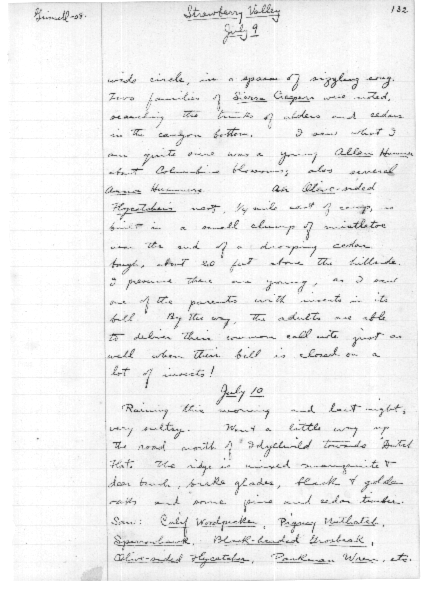 Grinnell-08.
Strawberry Valley
132
July 9
wide circle, in a spasm of sizzling song.
Two families of Sierra Creepers were noted,
searching the trunks of alders and cedars
in the canyon bottom. I saw what I
am quite sure was a young Allen Hummer
about Columbine blossoms; also several
Anna Hummers. An Olive-sided
Flycatcher's nest, 1/4 mile east of camp, is
built in a small clump of mistletoe
near the end of a drooping cedar
bough, about 20 feet above the hillside.
I presume there are young, as I saw
one of the parents with insects in its
bill. By the way, the adults are able
to deliver their common call note just as
well when their bill is closed on a
lot of insects!
July 10
Raining this morning and last night;
very sultry. Went a little way up
the road north of Idyllwild towards Dutch
Flat. The ridge is mixed manzanita &
deer brush, brake glades, black & golden
oaks and some pine and cedar timber.
Saw: Calif Woodpecker, Pigmy Nuthatch,
Sparrowhawk, Black-headed Grosbeak,
Olive-sided Flycatcher, Parkman Wren, etc.